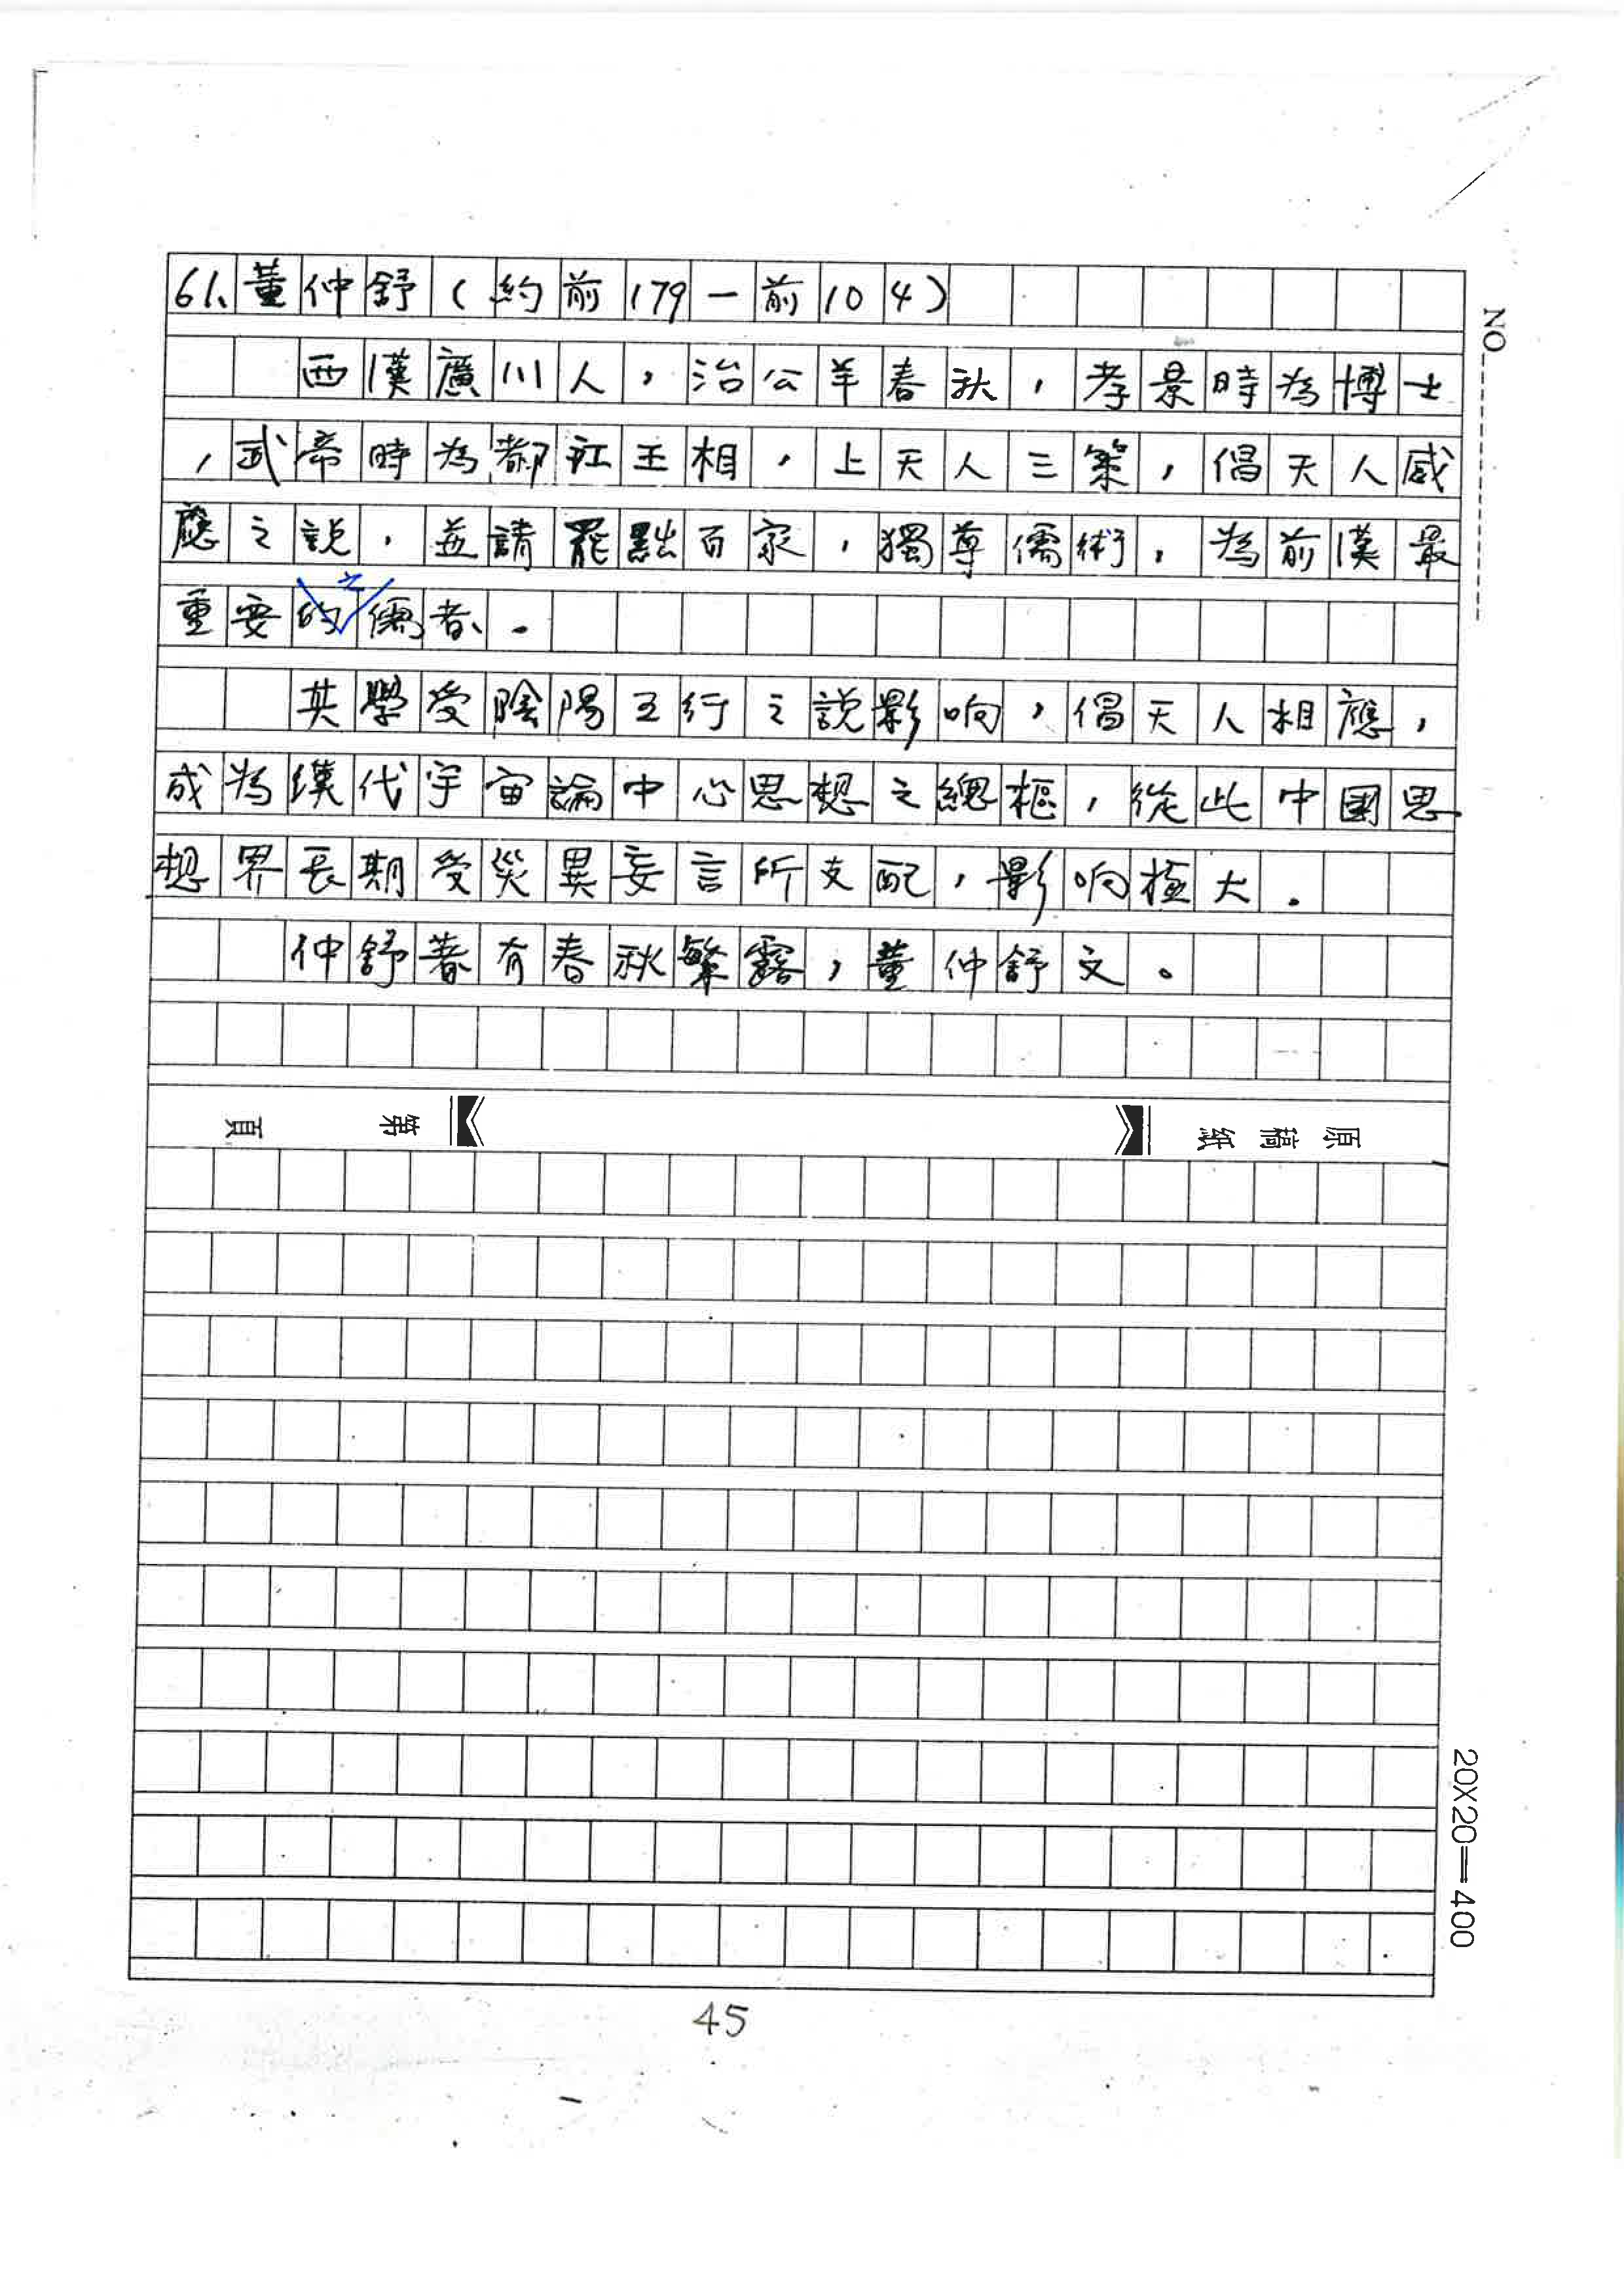 61、董仲舒(約前179—前104)
NO
西漢廣川人，治公羊春秋，孝景時為博士
，武帝時為都江王相，上天人三策，倡天人感
應之說，並請罷黜百家，獨尊儒術，為前漢最
之
重要的儒者。
其學受陰陽五行之說影响，倡天人相應，
成為漢代宇宙論中心思想之總樞，從此中國思
想界長期受災異妄言所支配，影响極大。
仲舒著有春秋繁露，董仲舒文。
頁 第 紙稿原
20X20=400
45